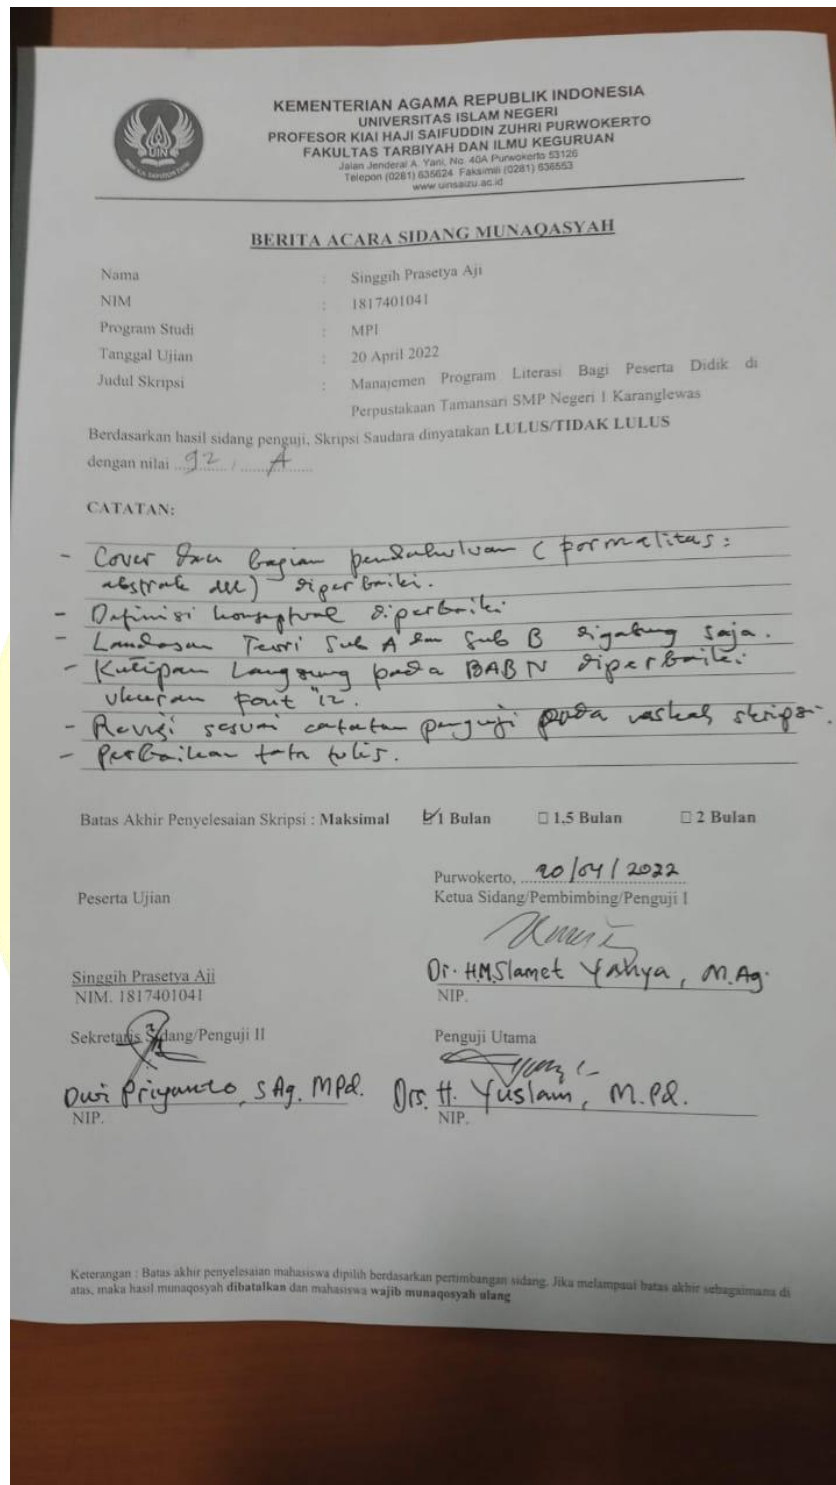 KEMENTERIAN AGAMA REPUBLIK INDONESIA
UNIVERSITAS ISLAM NEGERI
PROFESOR KIAI HAJI SAIFUDDIN ZUHRI PURWOKERTO
FAKULTAS TARBIYAH DAN ILMU KEGURUAN
Jalan Jenderal A. Yani, No. 40A Purwokerto 53126
Telepon (0281) 635624 Faksimili (0281) 636553
www.uinsaizu.ac.id
UIN
BERITA ACARA SIDANG MUNAQASYAH
Nama : Singgih Prasetya Aji
NIM : 1817401041
Program Studi : MPI
Tanggal Ujian : 20 April 2022
Judul Skripsi : Manajemen Program Literasi Bagi Peserta Didik di
Perpustakaan Tamansari SMP Negeri 1 Karanglewas
Berdasarkan hasil sidang penguji, Skripsi Saudara dinyatakan LULUS/TIDAK LULUS
dengan nilai 92 / A
CATATAN:
- Cover dan bagian pendahuluan (formalitas:
abstrak dll) diperbaiki.
- Definisi konseptual diperbaiki
- Landasan Teori Sub A dan Sub B digabung saja.
- Kutipan Langsung pada BAB IV diperbaiki
ukuran font "12.
- Revisi sesuai catatan penguji pada naskah skripsi.
- Perbaikan tata tulis.
Batas Akhir Penyelesaian Skripsi : Maksimal ☑ 1 Bulan □ 1,5 Bulan □ 2 Bulan
Purwokerto, 20/04/2022
Peserta Ujian Ketua Sidang/Pembimbing/Penguji I
Singgih Prasetya Aji Dr. H.M.Slamet Yahya, M.Ag.
NIM. 1817401041 NIP.
Sekretaris Sidang/Penguji II Penguji Utama
Dwi Priyanto, S.Ag. MPd. Drs. H. Yuslam, M.Pd.
NIP. NIP.
Keterangan : Batas akhir penyelesaian mahasiswa dipilih berdasarkan pertimbangan sidang. Jika melampaui batas akhir sebagaimana di
atas, maka hasil munaqosyah dibatalkan dan mahasiswa wajib munaqosyah ulang